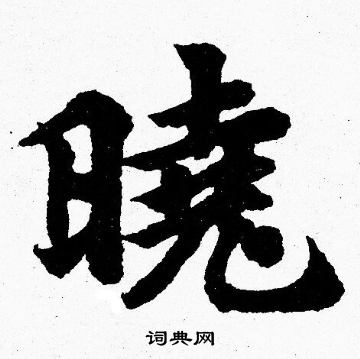 曉
词典网